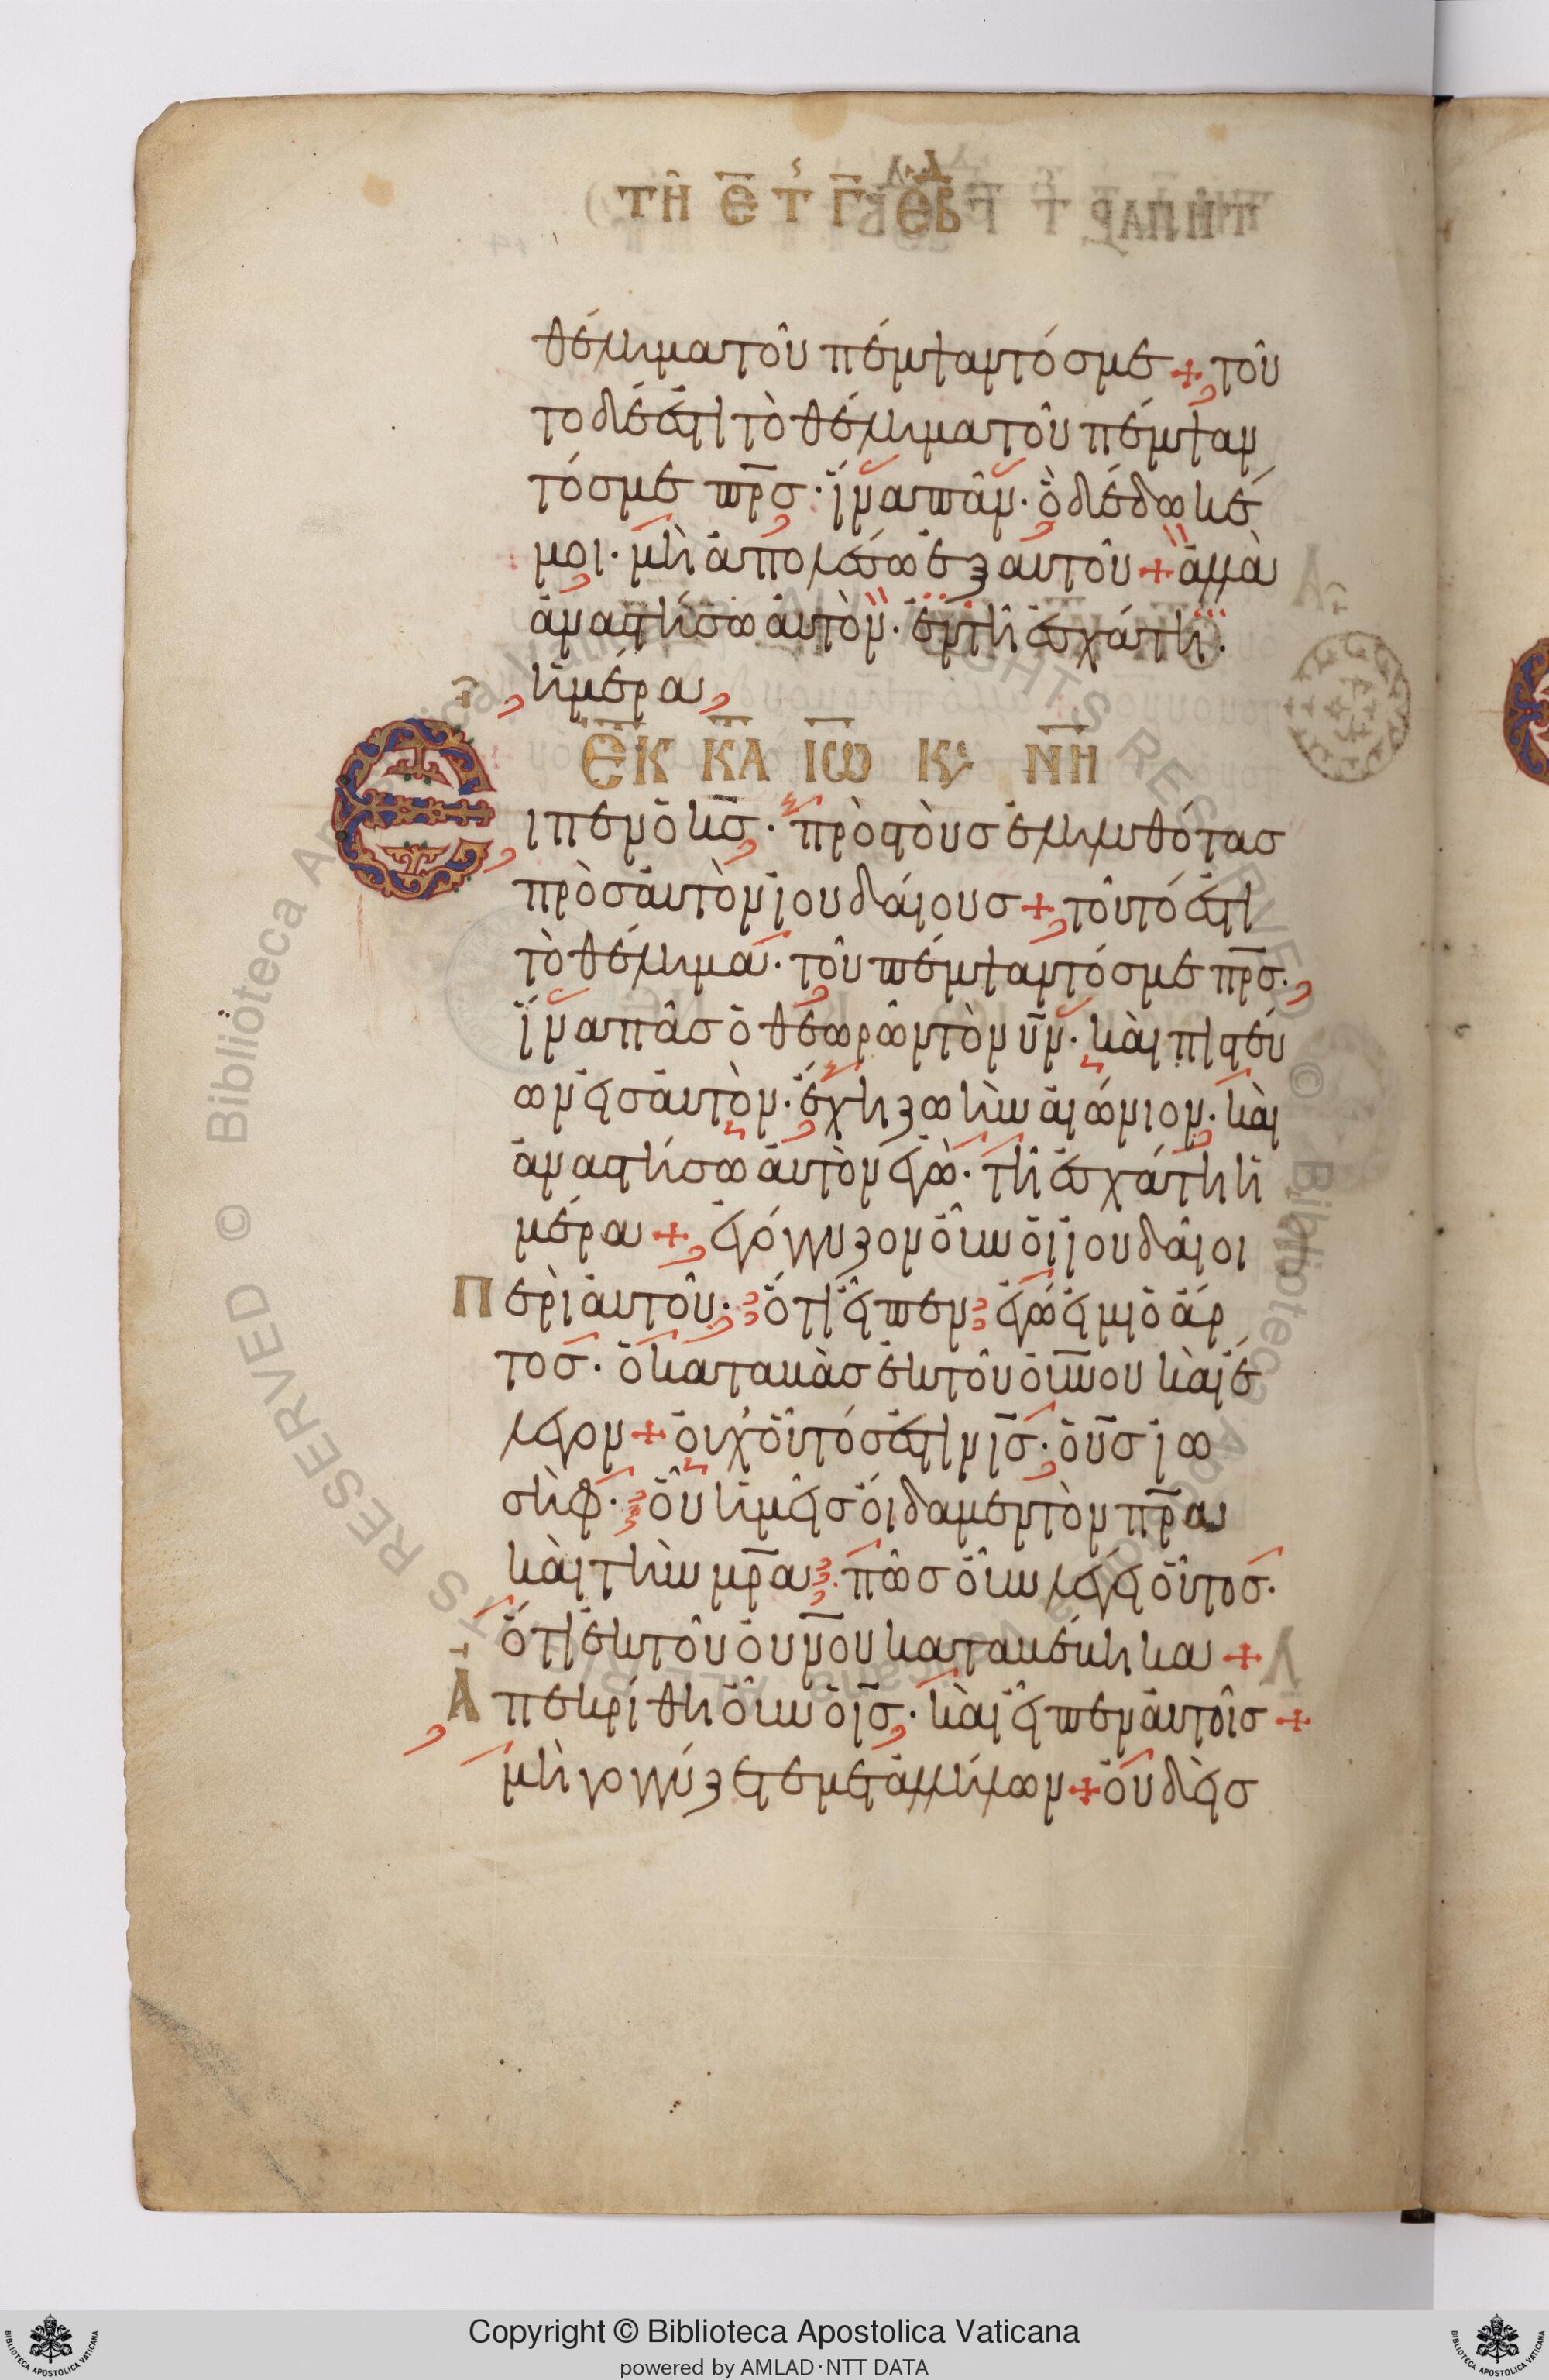 ΤΗ Ε Τ Γ ΕΒΔ
θέλημα τοῦ πέμψαντόσ με + τοῦ
το δέ ἐστι τὸ θέλημα τοῦ πέμψαν
τόσ με πρ̅σ · ἵνα πᾶν · ὃ δέδωκέ
μοι · μὴ ἀπολέσω ἐξ αὐτοῦ + ἀλλὰ
ἀναστήσω αὐτὸν · ἐν τῆ ἐσχάτη ·
ἡμέρα
ΕΚ ΚΛ ΙΩ Κ, ΝΗ
Ειπεν ὁ κ̅σ · πρὸσ τοὺσ ἐληλυθότασ
πρὸσ αὐτὸν ἰουδαίουσ + τοῦτό ἐστι
τὸ θέλημα · τοῦ πέμψαντόσ με πρ̅σ ·
ἵνα πᾶσ ὁ θεωρῶν τὸν υ̅ν · καὶ πιστεύ
ων εἰσ αὐτὸν · ἔχη ζωὴν αἰώνιον · καὶ
ἀναστήσω αὐτὸν ἐγὼ · τῆ ἐσχάτη ἡ
μέρα + ἐγόγγυζον οὖν οἱ ἰουδαῖοι
Περὶ αὐτοῦ · ὅτι εἶπεν ἐγώ εἰμι ὁ ἄρ
τοσ · ὁ καταβὰσ ἐκ τοῦ οὐ̅νου καὶ ἔ
λεγον + οὐχ οὗτόσ ἐστιν ι̅σ · ὁ υ̅σ ἰω
σὴφ · οὗ ἡμεῖσ οἴδαμεν τὸν πρ̅α
καὶ τὴν μρ̅α πῶσ οὖν λέγει οὗτοσ ·
ὅτι ἐκ τοῦ οὐν̅ου καταβέβηκα +
Απεκρίθη οὖν ὁ ι̅σ · καὶ εἶπεν αὐτοῖσ +
μὴ γογγύζετε μετ ἀλλήλων + οὐδεὶσ
Copyright © Biblioteca Apostolica Vaticana
powered by AMLAD·NTT DATA